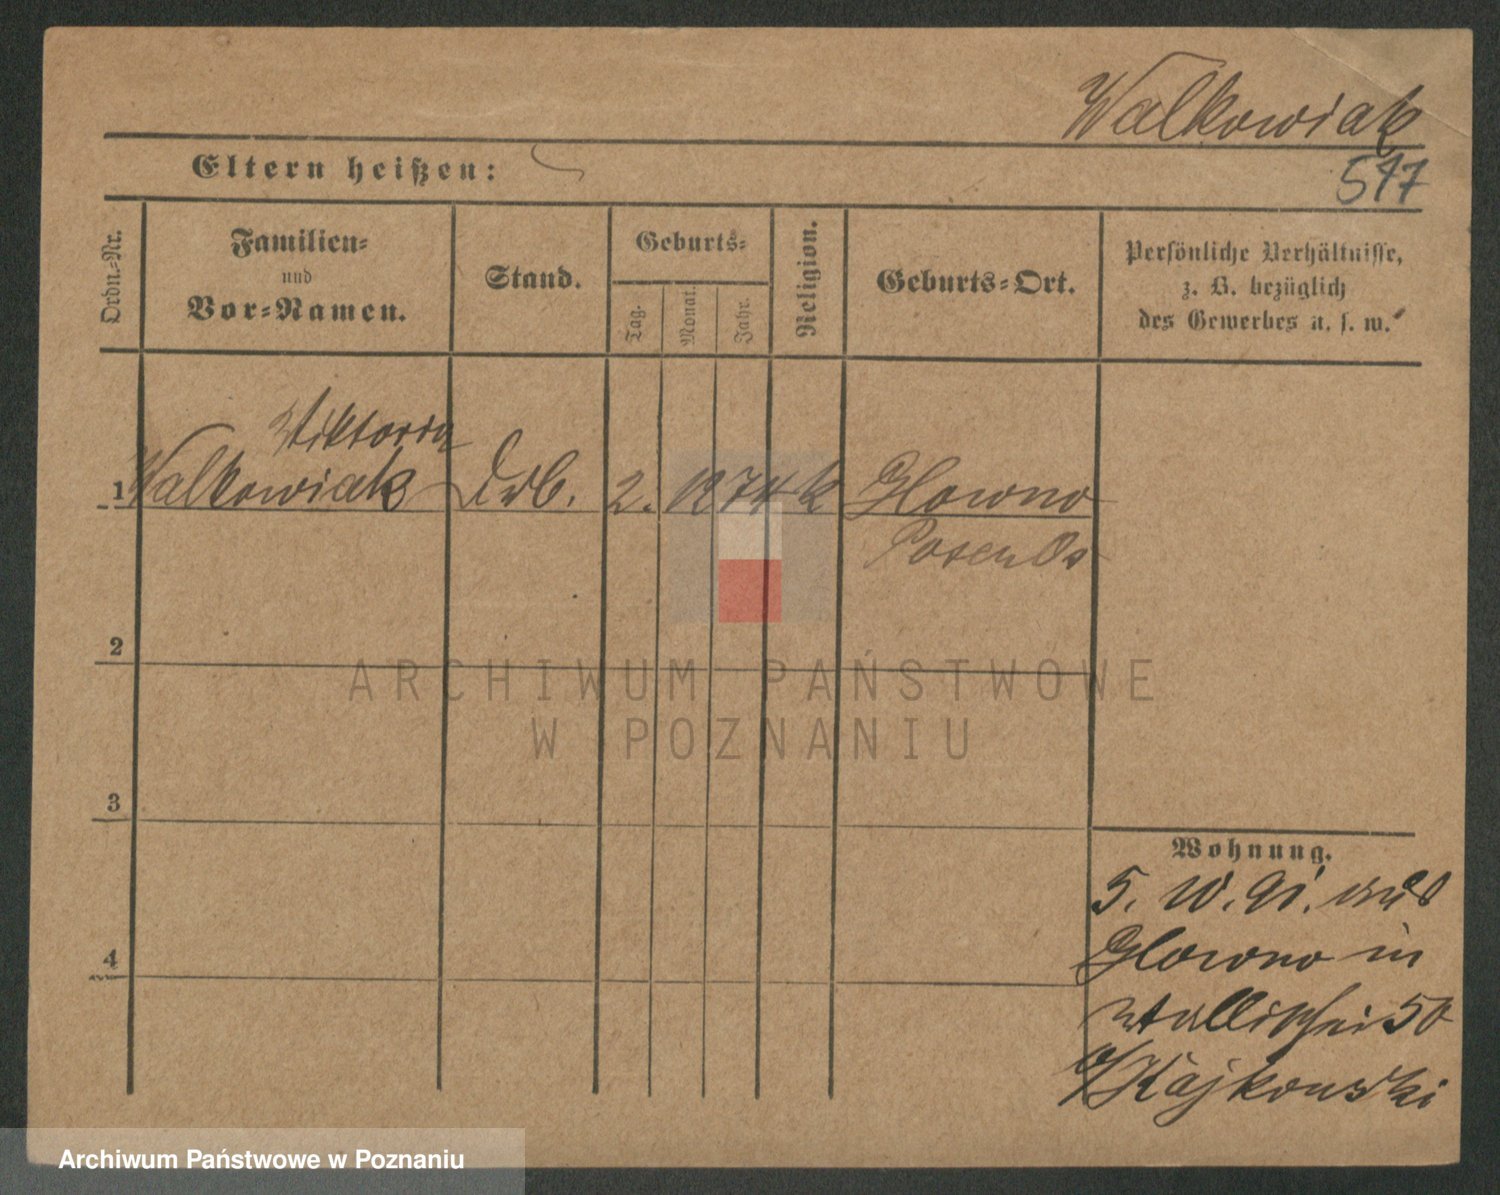 Walkowiak
Eltern heißen:
517
Ordn.-Nr.
Familien-
und
Vor-Namen.
Stand.
Geburts-
Tag.
Monat.
Jahr.
Religion.
Geburts-Ort.
Persönliche Verhältnisse,
z. B. bezüglich
des Gewerbes u. s. w.
Viktoria
1 Walkowiak 2. 12 74 k Glowno
Posen Os
2
3
4
Wohnung.
5. 10. 91. aus
Glowno in
Wallischei 50
b/Kajkowski
ARCHIWUM PAŃSTWOWE
W POZNANIU
Archiwum Państwowe w Poznaniu